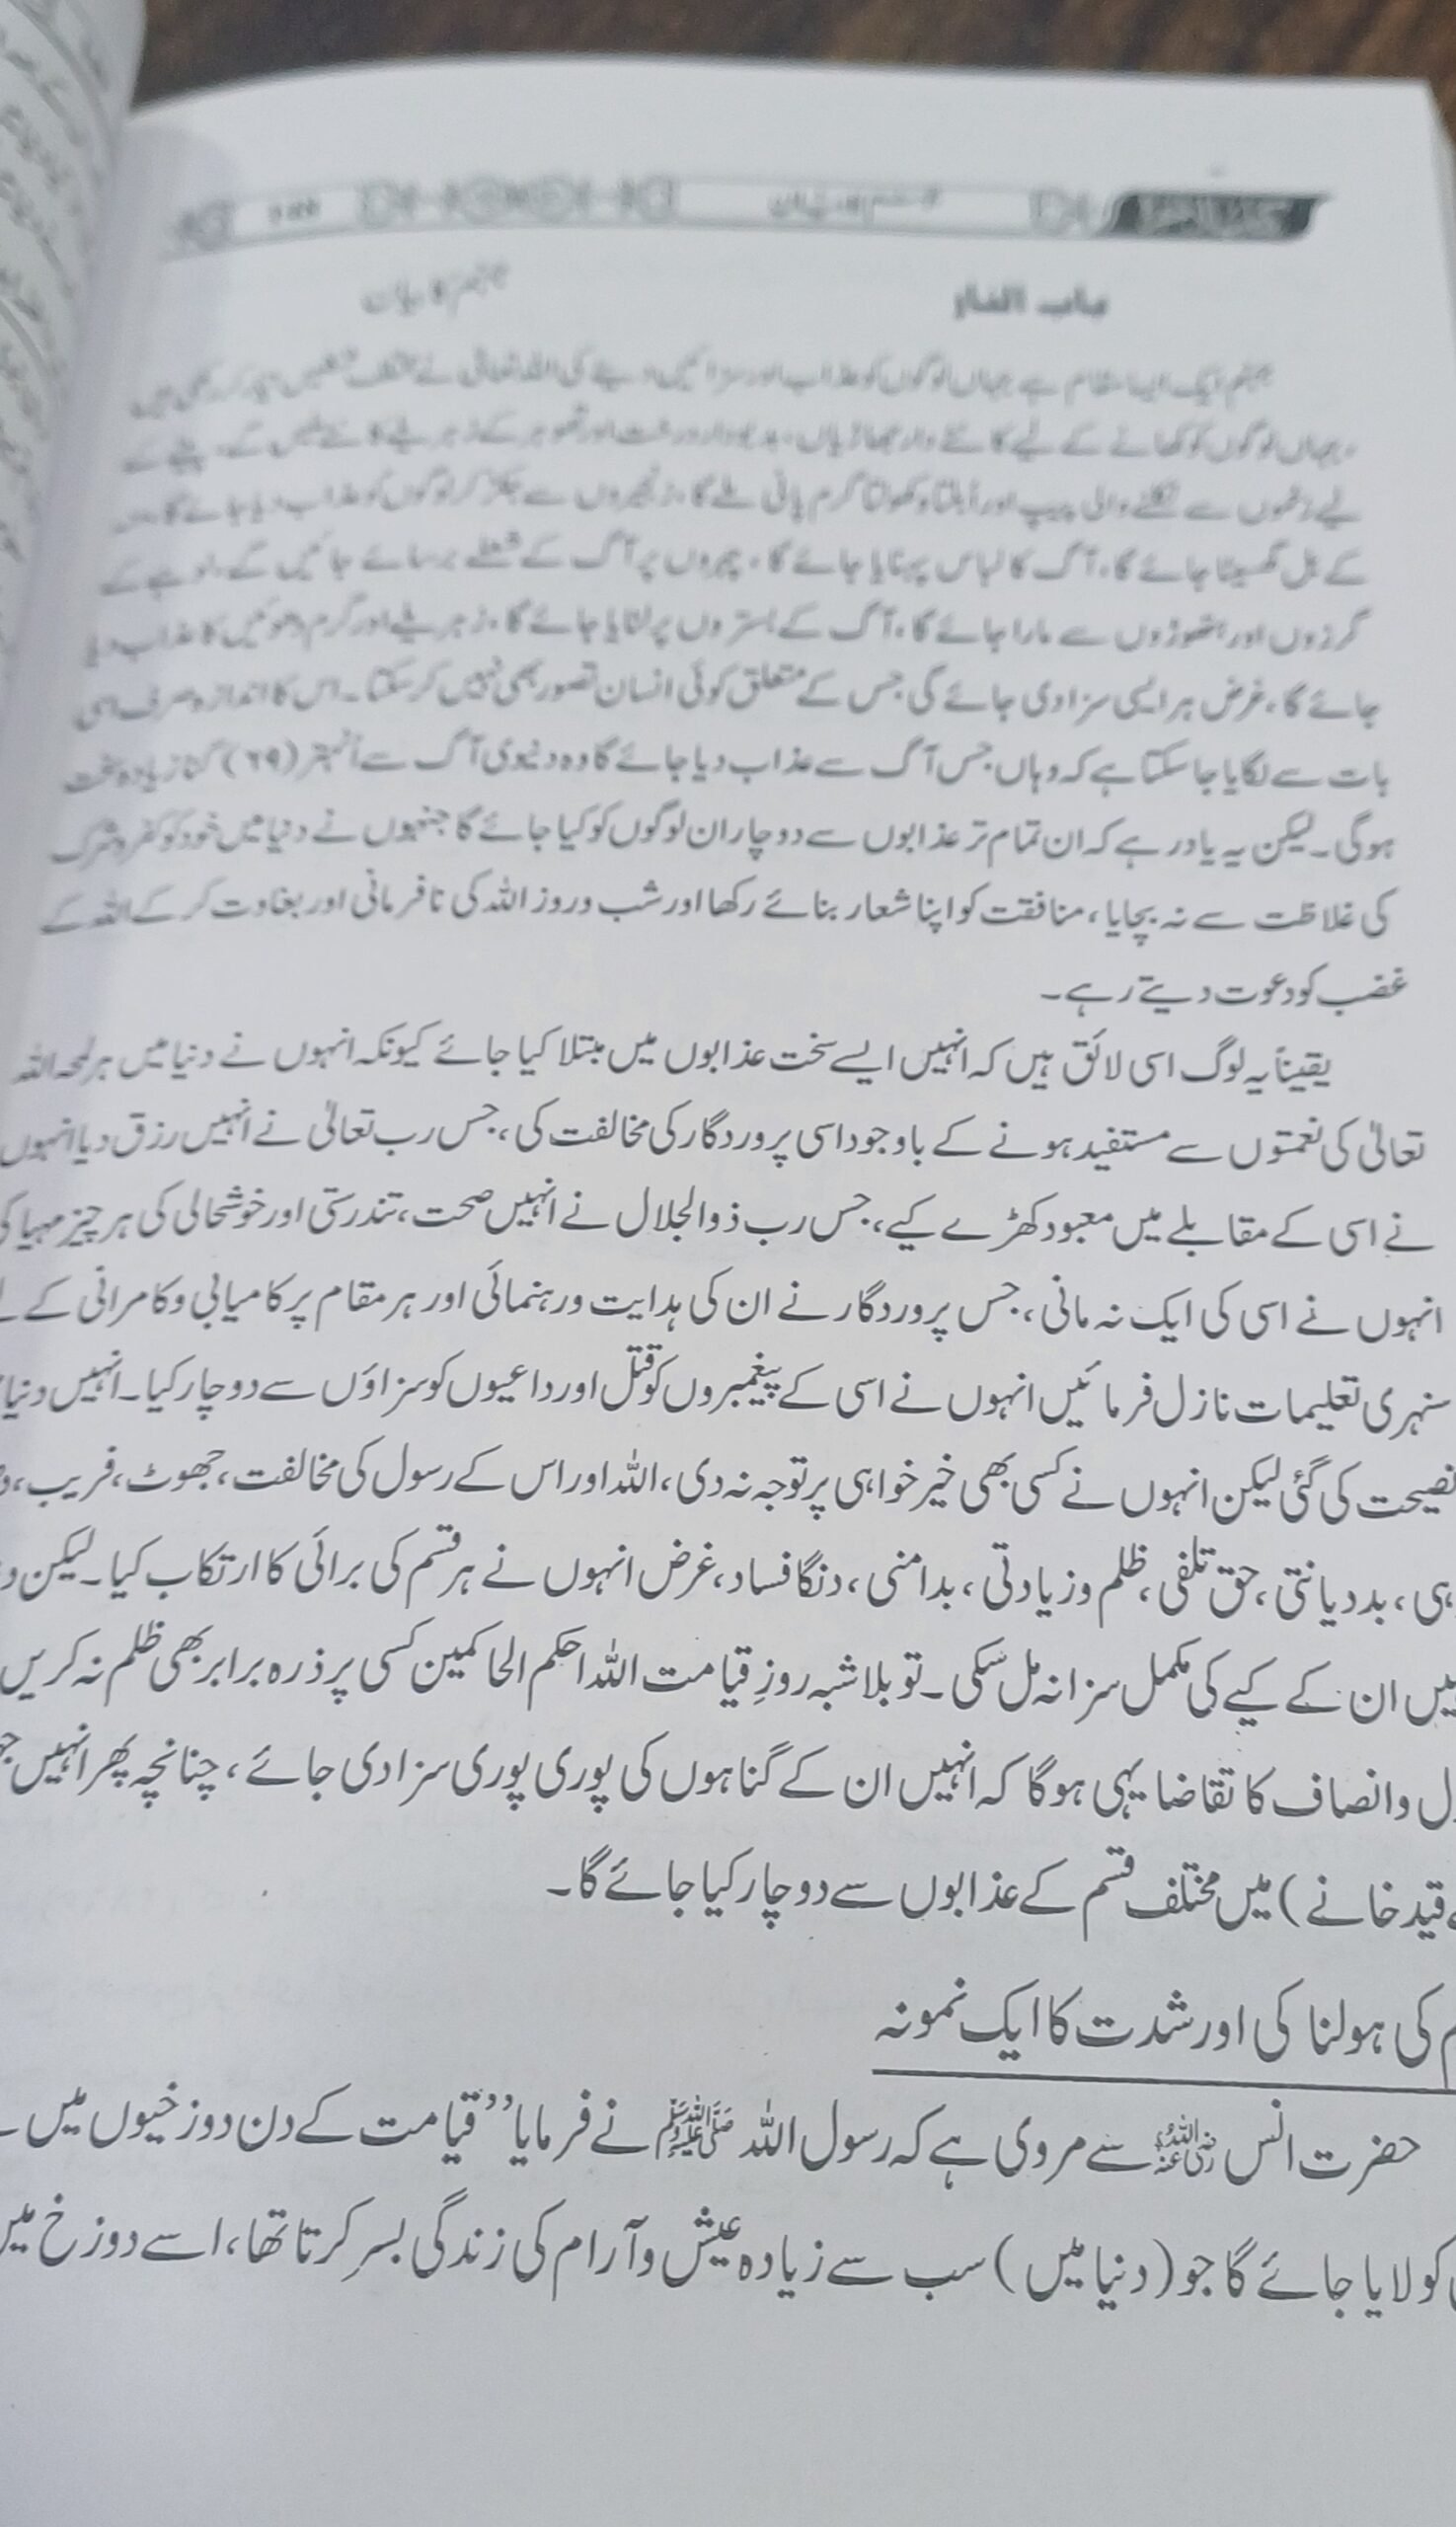 باب النار
جہنم کا بیان
جہنم ایک ایسا مقام ہے جہاں لوگوں کو عذاب اور سزائیں دینے کی اللہ تعالیٰ نے مختلف شکلیں تیار کر رکھی ہیں
، جہاں لوگوں کو کھانے کے لیے کانٹے دار جھاڑیاں، بدبودار درخت اور تھوہر کے زہریلے کانٹے ملیں گے، پینے کے
لیے زخموں سے نکلنے والی پیپ اور اُبلتا و کھولتا گرم پانی ملے گا، زنجیروں سے جکڑ کر لوگوں کو عذاب دیا جائے گا،
کے بل گھسیٹا جائے گا، آگ کا لباس پہنایا جائے گا، چہروں پر آگ کے شعلے برسائے جائیں گے، لوہے کے
گرزوں اور ہتھوڑوں سے مارا جائے گا، آگ کے بستروں پر لٹایا جائے گا، زہریلے اور گرم دھوئیں کا عذاب دیا
جائے گا، غرض ہر ایسی سزا دی جائے گی جس کے متعلق کوئی انسان تصور بھی نہیں کر سکتا۔ اس کا اندازہ صرف اسی
بات سے لگایا جا سکتا ہے کہ وہاں جس آگ سے عذاب دیا جائے گا وہ دنیوی آگ سے اُنہتر (۶۹) گنا زیادہ سخت
ہوگی۔ لیکن یہ یاد رہے کہ ان تمام تر عذابوں سے دوچار ان لوگوں کو کیا جائے گا جنہوں نے دنیا میں خود کو کفر و شرک
کی غلاظت سے نہ بچایا، منافقت کو اپنا شعار بنائے رکھا اور شب و روز اللہ کی نافرمانی اور بغاوت کر کے اللہ کے
غضب کو دعوت دیتے رہے۔
یقیناً یہ لوگ اسی لائق ہیں کہ انہیں ایسے سخت عذابوں میں مبتلا کیا جائے کیونکہ انہوں نے دنیا میں ہر لمحہ اللہ
تعالیٰ کی نعمتوں سے مستفید ہونے کے باوجود اسی پروردگار کی مخالفت کی، جس رب تعالیٰ نے انہیں رزق دیا انہوں
نے اسی کے مقابلے میں معبود کھڑے کیے، جس رب ذوالجلال نے انہیں صحت، تندرستی اور خوشحالی کی ہر چیز مہیا کی
انہوں نے اسی کی ایک نہ مانی، جس پروردگار نے ان کی ہدایت و رہنمائی اور ہر مقام پر کامیابی و کامرانی کے
سنہری تعلیمات نازل فرمائیں انہوں نے اسی کے پیغمبروں کو قتل اور داعیوں کو سزاؤں سے دوچار کیا۔ انہیں دنیا
نصیحت کی گئی لیکن انہوں نے کسی بھی خیر خواہی پر توجہ نہ دی، اللہ اور اس کے رسول کی مخالفت، جھوٹ، فریب،
ہی، بددیانتی، حق تلفی، ظلم و زیادتی، بدامنی، دنگا فساد، غرض انہوں نے ہر قسم کی برائی کا ارتکاب کیا۔ لیکن
میں ان کے کیے کی مکمل سزا نہ مل سکی۔ تو بلاشبہ روزِ قیامت اللہ احکم الحاکمین کسی پر ذرہ برابر بھی ظلم نہ کریں
ل و انصاف کا تقاضا یہی ہوگا کہ انہیں ان کے گناہوں کی پوری پوری سزا دی جائے، چنانچہ پھر انہیں
قید خانے) میں مختلف قسم کے عذابوں سے دوچار کیا جائے گا۔
م کی ہولناکی اور شدت کا ایک نمونہ
حضرت انس رضی اللہ عنہ سے مروی ہے کہ رسول اللہ ﷺ نے فرمایا ”قیامت کے دن دوزخیوں میں
کو لایا جائے گا جو (دنیا میں) سب سے زیادہ عیش و آرام کی زندگی بسر کرتا تھا، اسے دوزخ میں